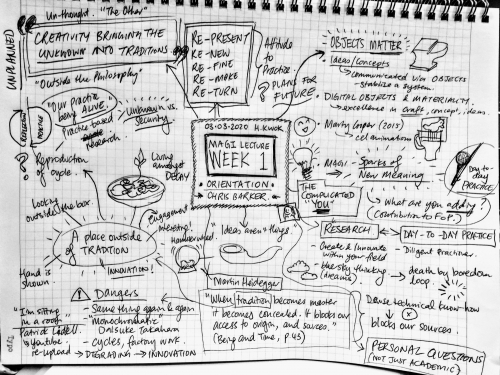 Un-thought. "The Other"
UNPLANNED
CREATIVITY BRINGING THE
UNKNOWN INTO TRADITIONS
"Outside the Philosophy"
RE-PRESENT
RE-NEW
RE-FINE
RE-MAKE
RE-TURN
Attitude
to
Practice
? PLANS FOR
FUTURE
OBJECTS MATTER
Ideas/Concepts
communicated via OBJECTS
- stabilize a system.
DIGITAL OBJECTS & MATERIALITY
- excellence in craft, concept, ideas.
Martin Cooper (2015)
cel animation
MAGI - Sparks of
New Meaning
Day-
to-day
PRACTICE
what are you adding?
(Contribution to FoP.)
"Our Practice
being ALIVE."
Practice based
research
Unknown vs.
Security
PRACTICE
? Reproduction
of cycle.
03-03-2020 H.KWOK
MAGI LECTURE
WEEK 1
ORIENTATION
CHRIS BARKER
Living
amongst
DECAY
Looking
outside the box
A place outside
of TRADITION
INNOVATION!
Hand is
shown.
Engagement
"Ideas aren't things"
THE
COMPLICATED
YOU"
RESEARCH
DAY-TO-DAY PRACTICE
- Diligent Practiser.
- Create & innovate
within your field
- blue sky thinking
(dreams).
death by boredom
loop.
Dense technical know-how
blocks our sources
PERSONAL QUESTIONS
(NOT JUST ACADEMIC)
"I'm sitting
in a room"
Youtube.
re-upload → DEGRADING → INNOVATION
Dangers
- Same thing again & again
- "Monochromatic"
- cycles, factory work.
Martin Heidegger
"When tradition becomes master
it becomes concealed. It blocks our
access to origin, and sources."
(Being and Time, p 43)